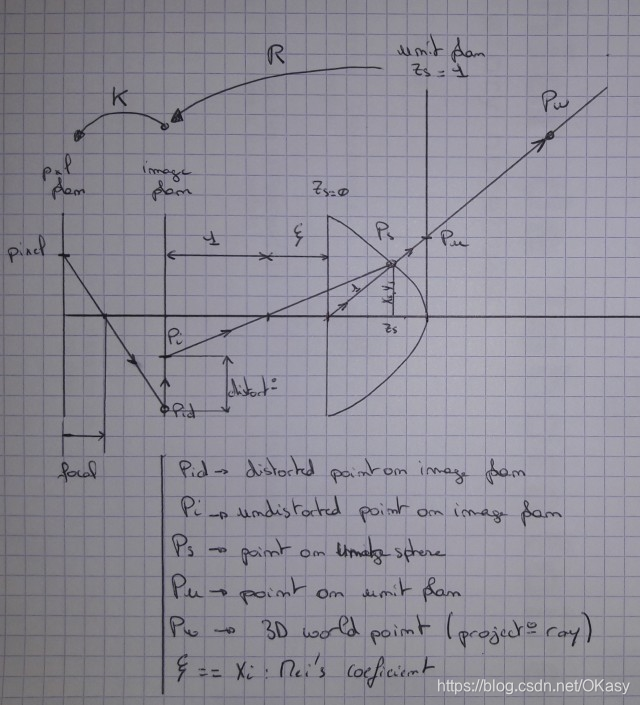 R
unit plan
Zs = 1
K
Pw
pixl plan
image plan
Zs=0
pixel
1
ξ
Ps
Pu
1
Zs
Pi
distort°
Pid
focal
Pid → distorted point on image plan
Pi → undistorted point on image plan
Ps → point on sphere
Pu → point on unit plan
Pw → 3D world point (project° ray)
ξ == Xi : Mei's coeficient
https://blog.csdn.net/OKasy